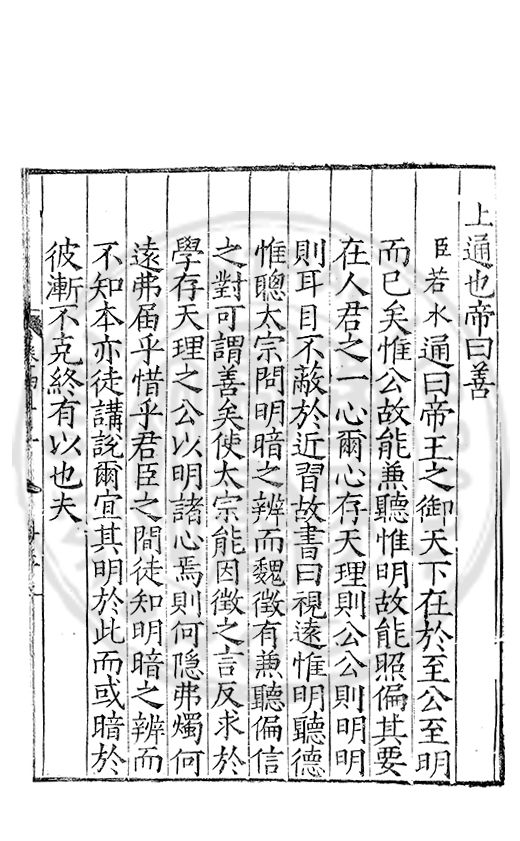 上通也帝曰善
臣若水通曰帝王之御天下在於至公至明
而已矣惟公故能兼聽惟明故能照偏其要
在人君之一心爾心存天理則公公則明明
則耳目不蔽於近習故書曰視遠惟明聽德
惟聰太宗問明暗之辨而魏徵有兼聽偏信
之對可謂善矣使太宗能因徵之言反求於
學存天理之公以明諸心焉則何隱弗燭何
遠弗届乎惜乎君臣之間徒知明暗之辨而
不知本亦徒講說爾宜其明於此而或暗於
彼漸不克終有以也夫